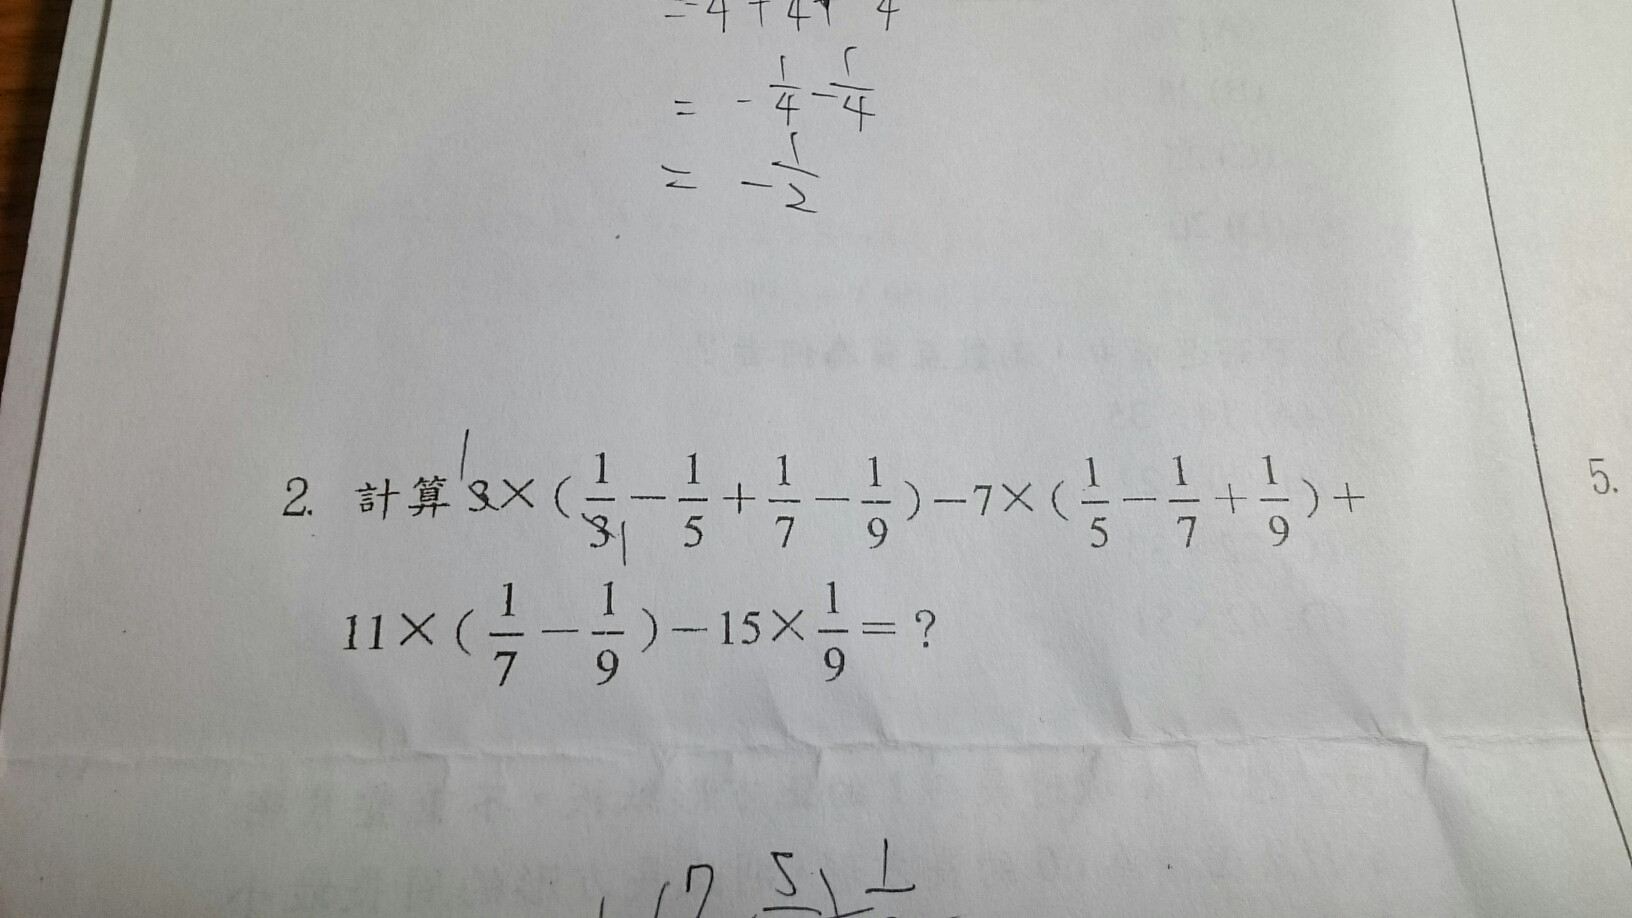 = - 1/4 - 1/4
= - 1/2
2. 計算 3×(1/3-1/5+1/7-1/9)-7×(1/5-1/7+1/9)+
11×(1/7-1/9)-15×1/9=?
5.